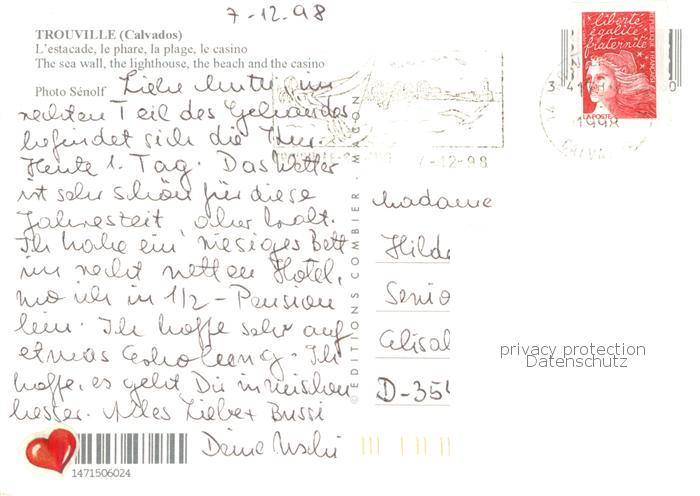 7-12.98
TROUVILLE (Calvados)
L'estacade, le phare, la plage, le casino
The sea wall, the lighthouse, the beach and the casino
Photo Sénolf
Liebe Mutti, im
rechten Teil des Gebäudes
befindet sich die Thur.
Heute 1. Tag. Das Wetter
ist sehr schön für diese
Jahreszeit, aber kalt.
Ich habe ein riesiges Bett
im recht netten Hotel,
wo ich in 1/2-Pension
bin. Ich hoffe sehr auf
etwas Erholung. Ich
hoffe, es geht Dir inzwischen
besser. Alles Liebe + Bussi
Deine Uschi
1471506024
© EDITIONS COMBIER - MACON
7-12-98
liberté
égalité
fraternité
RÉPUBLIQUE FRANÇAISE
LA POSTE
1998
Madame
Hilde
Senio
Elisab
D-354
privacy protection
Datenschutz